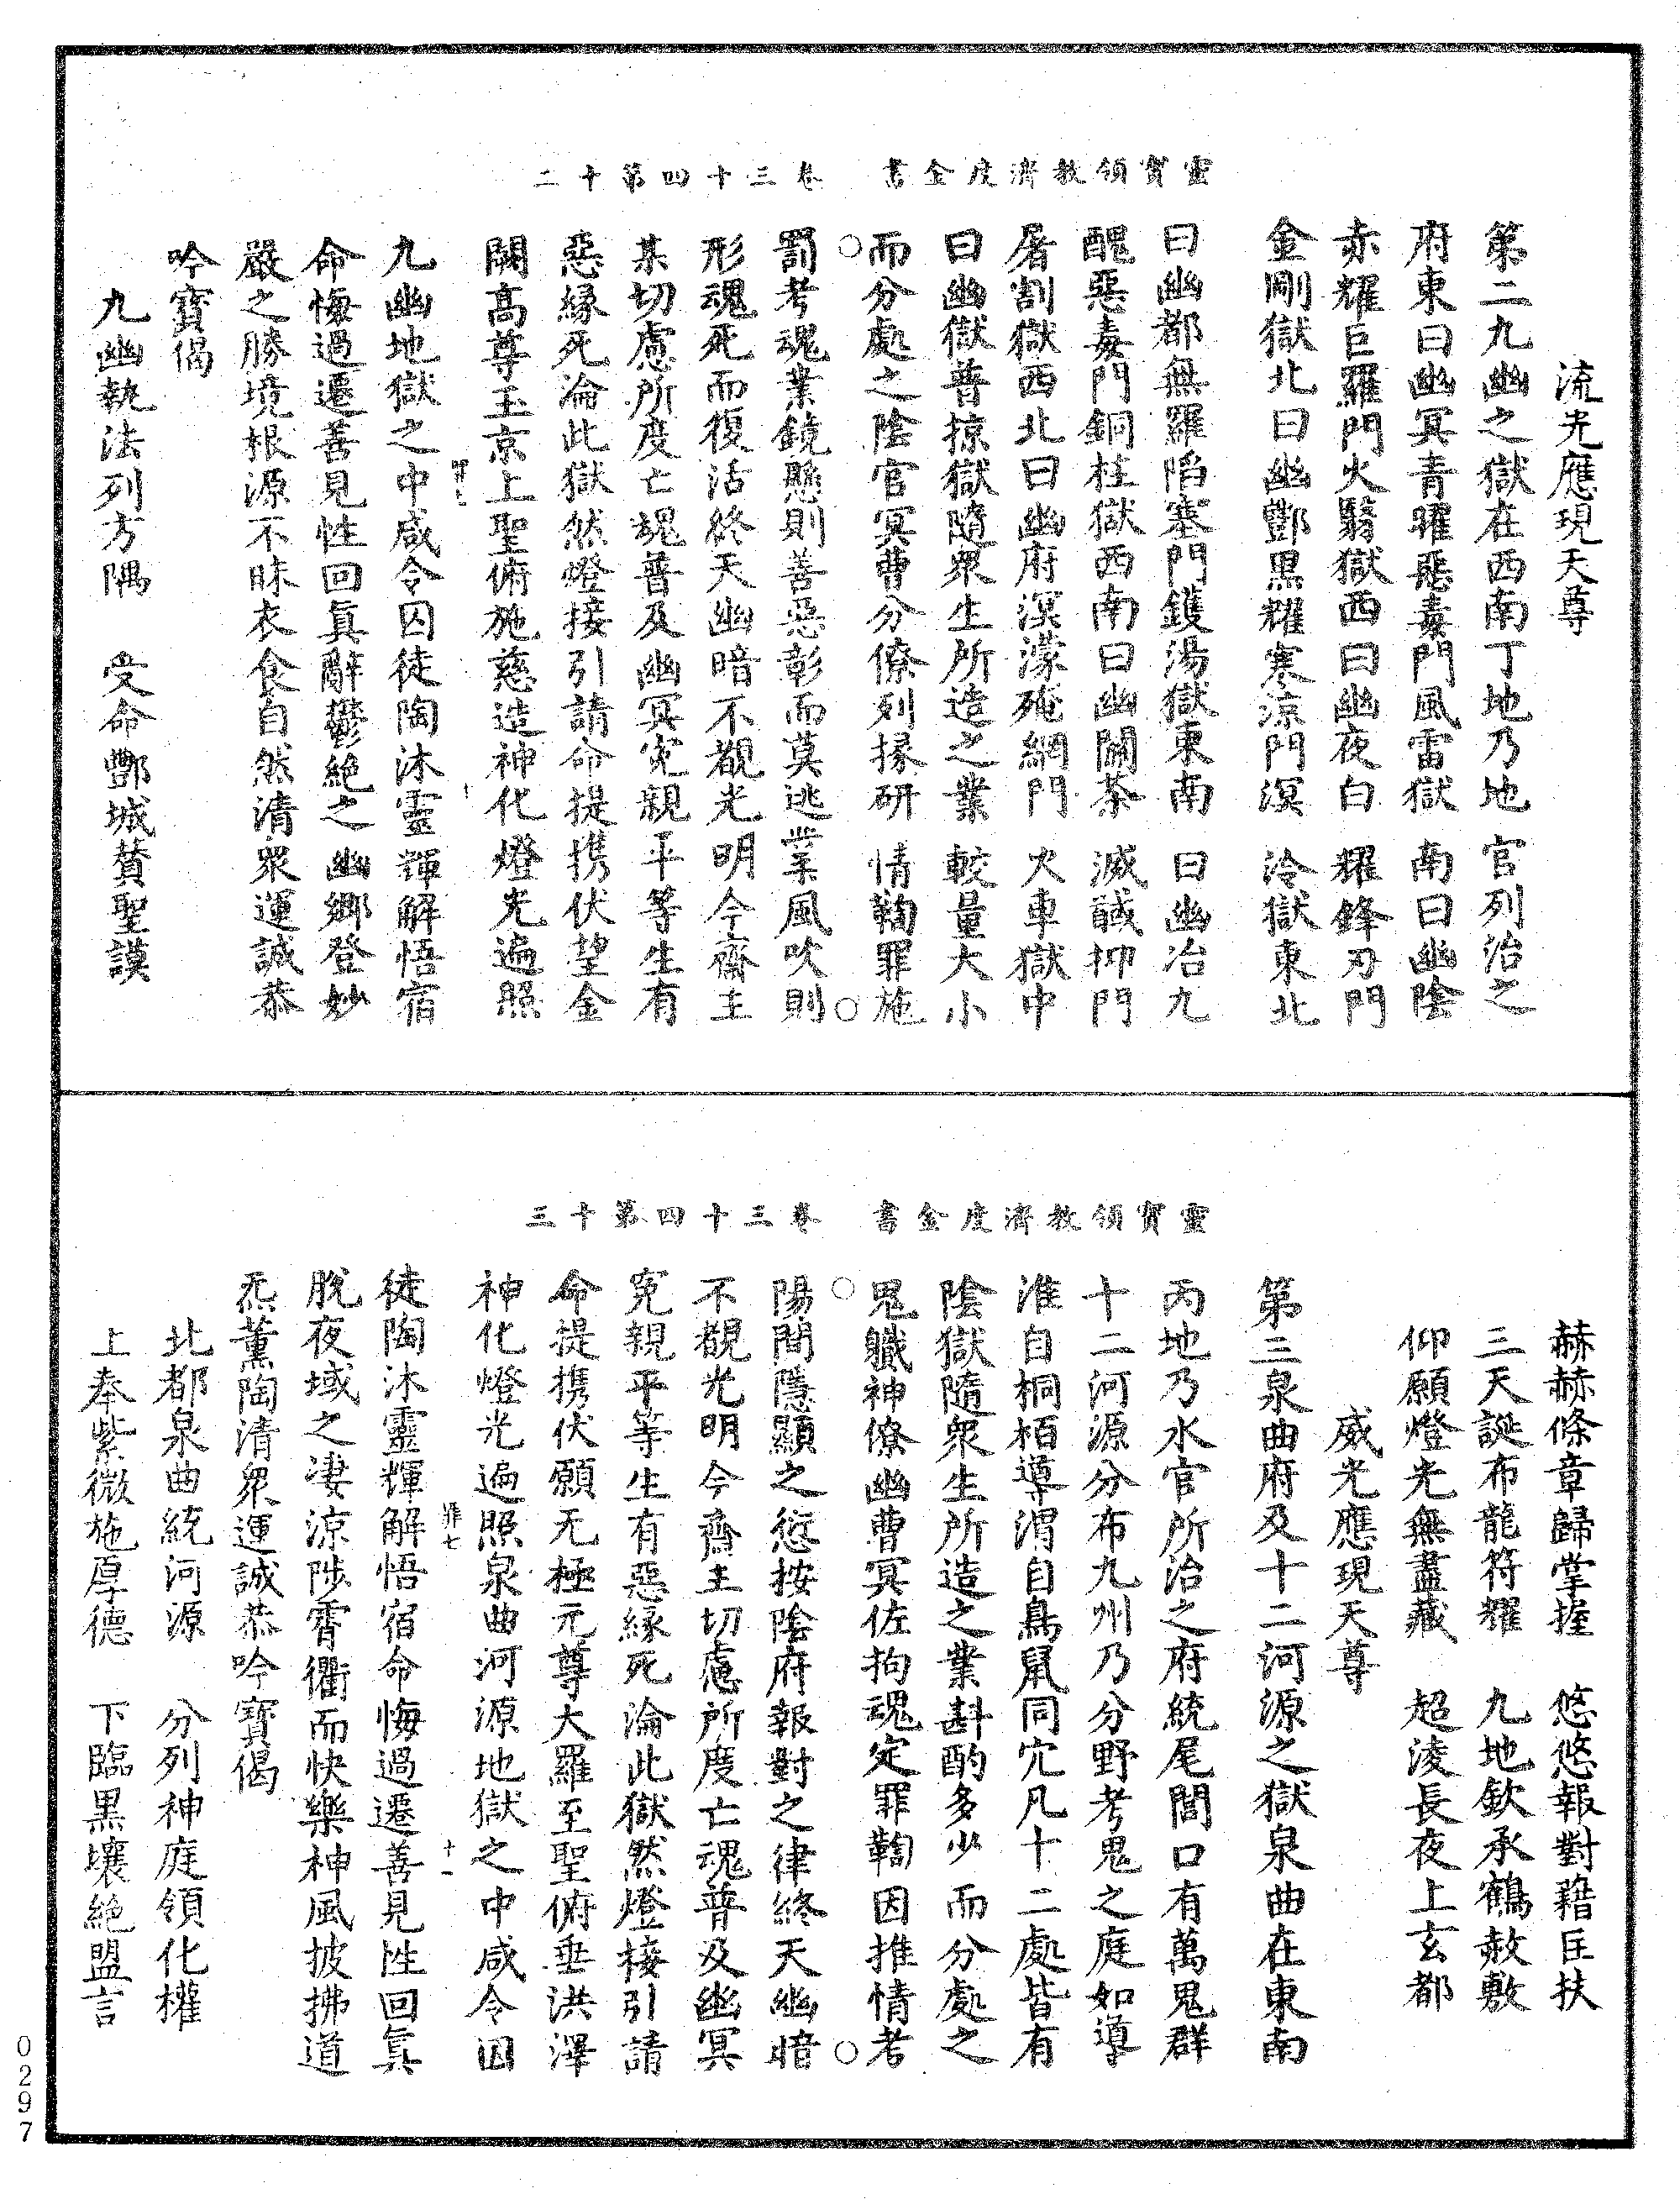 靈寶領教濟度金書　卷三十四第十二
流光應現天尊
第二九幽之獄在西南丁地乃地官列治之
府東曰幽冥青曜惡毒門風雷獄南曰幽陰
赤耀巨羅門火翳獄西曰幽夜白耀鋒刃門
金剛獄北曰幽酆黑耀寒涼門溟泠獄東北
曰幽都無羅陷塞門鑊湯獄東南曰幽冶九
醜惡毒門銅柱獄西南曰幽關荼滅馘抑門
屠割獄西北曰幽府溟濛殗網門火車獄中
曰幽獄普掠獄隨衆生所造之業較量大小
而分處之陰官冥曹分僚列掾研情鞫罪施
罰考魂業鏡懸則善惡彰而莫逃業風吹則
形魂死而復活終天幽暗不覩光明今齋主
某切慮所度亡魂普及幽冥寃親平等生有
惡緣死淪此獄然燈接引請命提携伏望金
闕高尊玉京上聖俯施慈造神化燈光遍照
九幽地獄之中咸令囚徒陶沐靈輝解悟宿
命悔過遷善見性回真辭鬱絕之幽鄉登妙
嚴之勝境根源不昧衣食自然清衆運誠恭
吟寶偈
九幽執法列方隅　受命酆城贊聖謨
靈寶領教濟度金書　卷三十四第十三
赫赫條章歸掌握　悠悠報對藉匡扶
三天誕布龍符耀　九地欽承鶴赦敷
仰願燈光無盡藏　超淩長夜上玄都
威光應現天尊
第三泉曲府及十二河源之獄泉曲在東南
丙地乃水官所治之府統尾閭口有萬鬼群
十二河源分布九州乃分野考鬼之庭如導
淮自桐栢導渭自鳥鼠同穴凡十二處皆有
陰獄隨衆生所造之業斟酌多少而分處之
鬼職神僚幽曹冥佐拘魂定罪鞫因推情考
陽間隱顯之愆按陰府報對之律終天幽暗
不覩光明今齋主切慮所度亡魂普及幽冥
寃親平等生有惡緣死淪此獄然燈接引請
命提携伏願无極元尊大羅至聖俯垂洪澤
神化燈光遍照泉曲河源地獄之中咸令囚
罪七　十一
徒陶沐靈輝解悟宿命悔過遷善見性回真
脫夜域之凄涼陟霄衢而快樂神風披拂道
炁薰陶清衆運誠恭吟寶偈
北都泉曲統河源　分列神庭領化權
上奉紫微施厚德　下臨黑壤絕盟言
0297